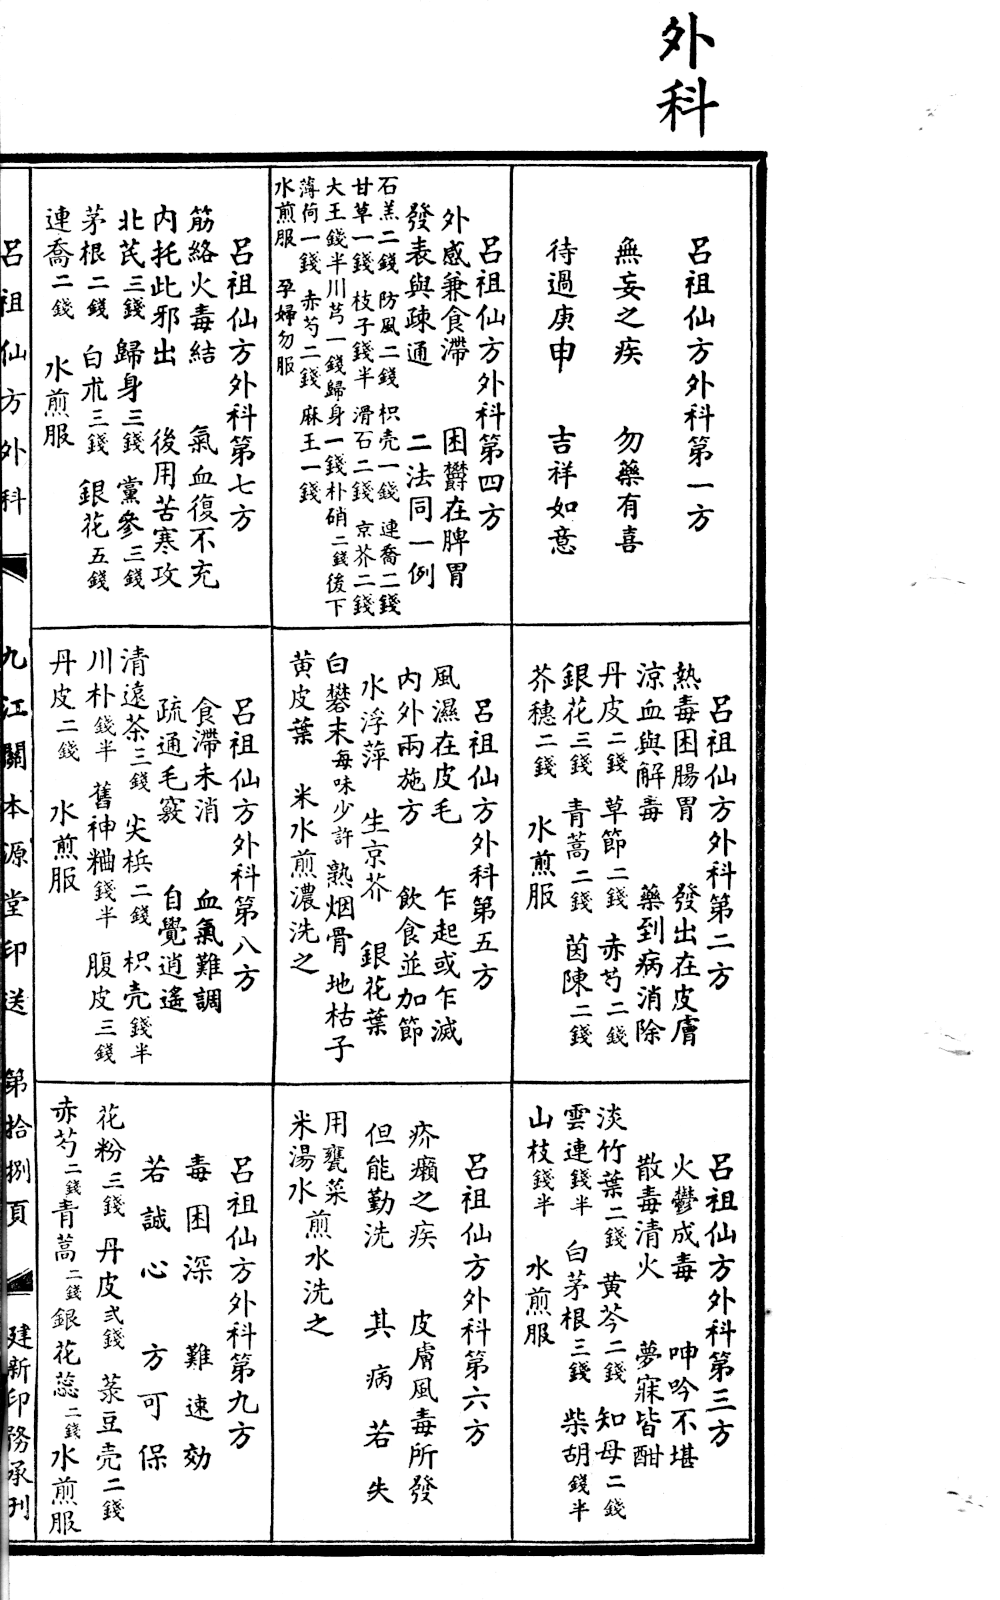 外科
呂祖仙方外科第一方
無妄之疾　勿藥有喜
待過庚申　吉祥如意
呂祖仙方外科第二方
熱毒困腸胃　發出在皮膚
涼血與解毒　藥到病消除
丹皮二錢　草節二錢　赤芍二錢
銀花三錢　青蒿二錢　茵陳二錢
芥穗二錢　水煎服
呂祖仙方外科第三方
火鬱成毒　呻吟不堪
散毒清火　夢寐皆酣
淡竹葉二錢　黄芩二錢　知母二錢
雲連錢半　白茅根三錢　柴胡錢半
山枝錢半　水煎服
呂祖仙方外科第四方
外感兼食滯　困欝在脾胃
發表與疎通　二法同一例
石羔二錢　防風二錢　枳壳一錢　連喬二錢
甘草一錢　枝子錢半　滑石二錢　京芥二錢
大王錢半　川芎一錢　歸身一錢　朴硝二錢後下
薄荷一錢　赤芍二錢　麻王一錢
水煎服　孕婦勿服
呂祖仙方外科第五方
風濕在皮毛　乍起或乍滅
内外兩施方　飲食並加節
水浮萍　生京芥　銀花葉
白礬末每味少許　熟烟骨　地枯子
黄皮葉　米水煎濃洗之
呂祖仙方外科第六方
疥癩之疾　皮膚風毒所發
但能勤洗　其病若失
用甕菜
米湯水　煎水洗之
呂祖仙方外科第七方
筋絡火毒結　氣血復不充
内托此邪出　後用苦寒攻
北芪三錢　歸身三錢　黨參三錢
茅根二錢　白朮三錢　銀花五錢
連喬二錢　水煎服
呂祖仙方外科第八方
食滯未消　血氣難調
疏通毛竅　自覺逍遙
清遠茶三錢　尖梹二錢　枳壳錢半
川朴錢半　舊神粬錢半　腹皮三錢
丹皮二錢　水煎服
呂祖仙方外科第九方
毒困深　難速効
若誠心　方可保
花粉三錢　丹皮弍錢　菉豆壳二錢
赤芍二錢　青蒿二錢　銀花蕊二錢　水煎服
呂祖仙方外科　九江關本源堂印送　第拾捌頁　建新印務承刊